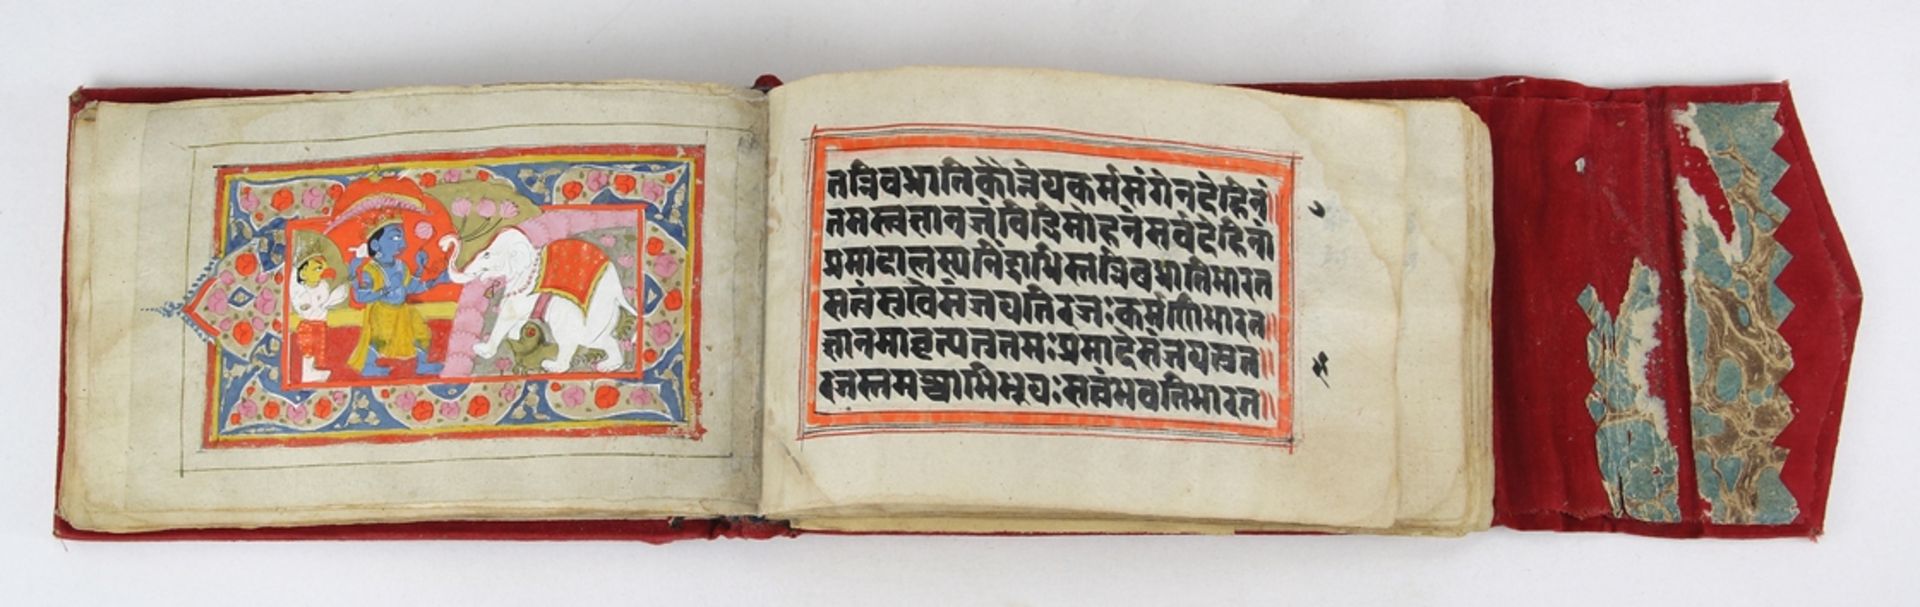 तन्निबध्नातिकौन्तेयकर्मसंगेनदेहिनं॥
तमस्त्वज्ञानजंविद्धिमोहनंसर्वदेहिनां
प्रमादालस्यनिद्राभिस्तन्निबध्नातिभारत
सत्वंसुखेसंजयतिरजःकर्मणिभारत॥
ज्ञानमावृत्यतुतमःप्रमादेसंजयत्युत॥
रजस्तमश्चाभिभूयःसत्वंभवतिभारत॥